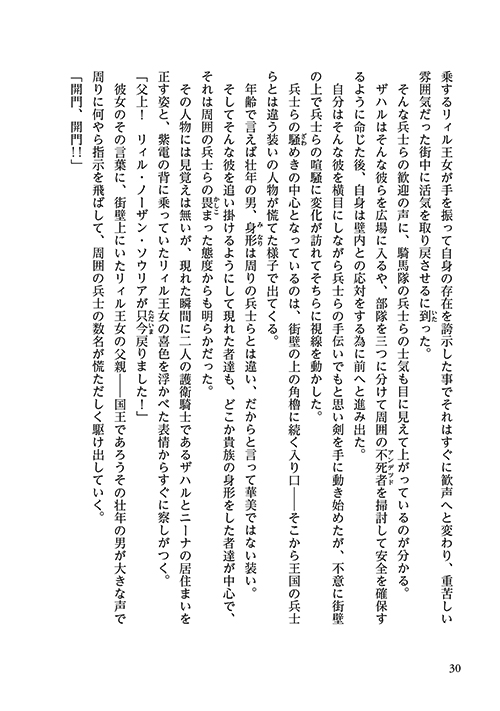 乗するリィル王女が手を振って自身の存在を誇示した事でそれはすぐに歓声へと変わり、重苦しい
雰囲気だった街中に活気を取り戻させるに到った。
そんな兵士らの歓迎の声に、騎馬隊の兵士らの士気も目に見えて上がっているのが分かる。
ザハルはそんな彼らを広場に入るや、部隊を三つに分けて周囲の不死者を掃討して安全を確保す
るように命じた後、自身は壁内との応対をする為に前へと進み出た。
自分はそんな彼を横目にしながら兵士らの手伝いでもと思い剣を手に動き始めたが、不意に街壁
の上で兵士らの喧騒に変化が訪れてそちらに視線を動かした。
兵士らの騒めきの中心となっているのは、街壁の上の角櫓に続く入り口――そこから王国の兵士
らとは違う装いの人物が慌てた様子で出てくる。
年齢で言えば壮年の男、身形は周りの兵士らとは違い、だからと言って華美ではない装い。
そしてそんな彼を追い掛けるようにして現れた者達も、どこか貴族の身形をした者達が中心で、
それは周囲の兵士らの畏まった態度からも明らかだった。
その人物には見覚えは無いが、現れた瞬間に二人の護衛騎士であるザハルとニーナの居住まいを
正す姿と、紫電の背に乗っていたリィル王女の喜色を浮かべた表情からすぐに察しがつく。
「父上！　リィル・ノーザン・ソウリアが只今戻りました！」
彼女のその言葉に、街壁上にいたリィル王女の父親――国王であろうその壮年の男が大きな声で
周りに何やら指示を飛ばして、周囲の兵士の数名が慌ただしく駆け出していく。
「開門、開門!!」
30